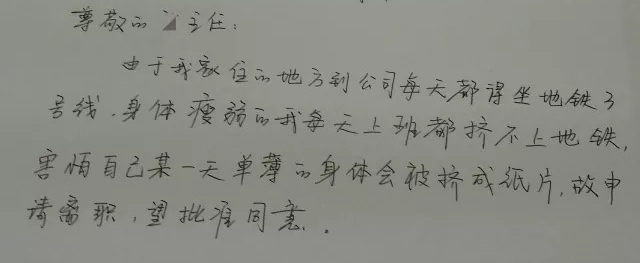 尊敬的 主任:
由于我家住的地方到公司每天都得坐地铁3
号线.身体瘦弱的我每天上班都挤不上地铁,
害怕自己某一天单薄的身体会被挤成纸片,故申
请离职,望批准同意.